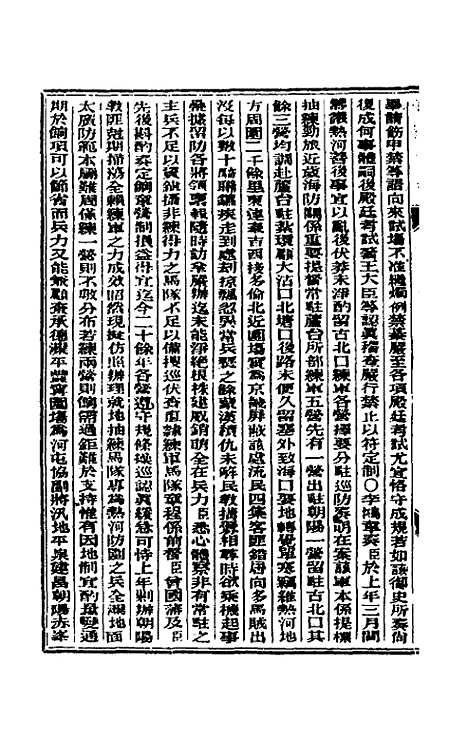 畢請飭申禁等語向來試場不准攜煙例禁綦嚴至各項殿廷考試尤宜恪守成規若如該御史所奏尚
復成何事體嗣後殿廷考試著王大臣等認眞稽查嚴行禁止以符定制〇李鴻章奏臣於上年三月間
籌議熱河善後事宜以亂後伏莽未淨酌留古北口練軍各營擇要分駐巡防奏明在案該軍本係提標
抽練勁旅近畿海防關係重要提督常駐蘆台所部練軍五營先有一營出駐朝陽一營留駐古北口其
餘三營均調赴蘆台駐紮環顧大沽口北塘口後路未便久留塞外致海口要地轉覺單寒竊維熱河地
方周圍二千餘里東連奉吉西接多倫北近圍場實爲京畿屏蔽處流民四集客匪錯居向多馬賊出
沒每以數十騎聯鑣疾走到處刦掠飄忽異常兵燹之餘蒙漢積仇未解民教猜釁相尋時欲乘機起事
疊據留防各將領稟報隨時訪拿嚴辦迄未能淨絕根株建威銷萌全在兵力臣悉心體察非有常駐之
主兵不足以資鎮攝非練得力之馬隊不足以備搜巡伏查直隸練軍馬隊章程係前督臣曾國藩及臣
先後斟酌奏定餉章營制損益得宜迄今二十餘年各營遵守規條操巡認眞緩急可恃上年剿辦朝陽
教匪剋期掃蕩全賴練軍之力成效昭然現擬仿照辦理就地抽練馬隊專爲熱河防剿之兵全境地面
太廣防範本屬難周僅練一營則不敷分布若練兩營則餉需過鉅難於支持惟有因地制宜酌量變通
期於餉項可以節省而兵力又能兼顧查承德灤平豐寧圍場爲河屯協副將汛地平泉建昌朝陽赤峯